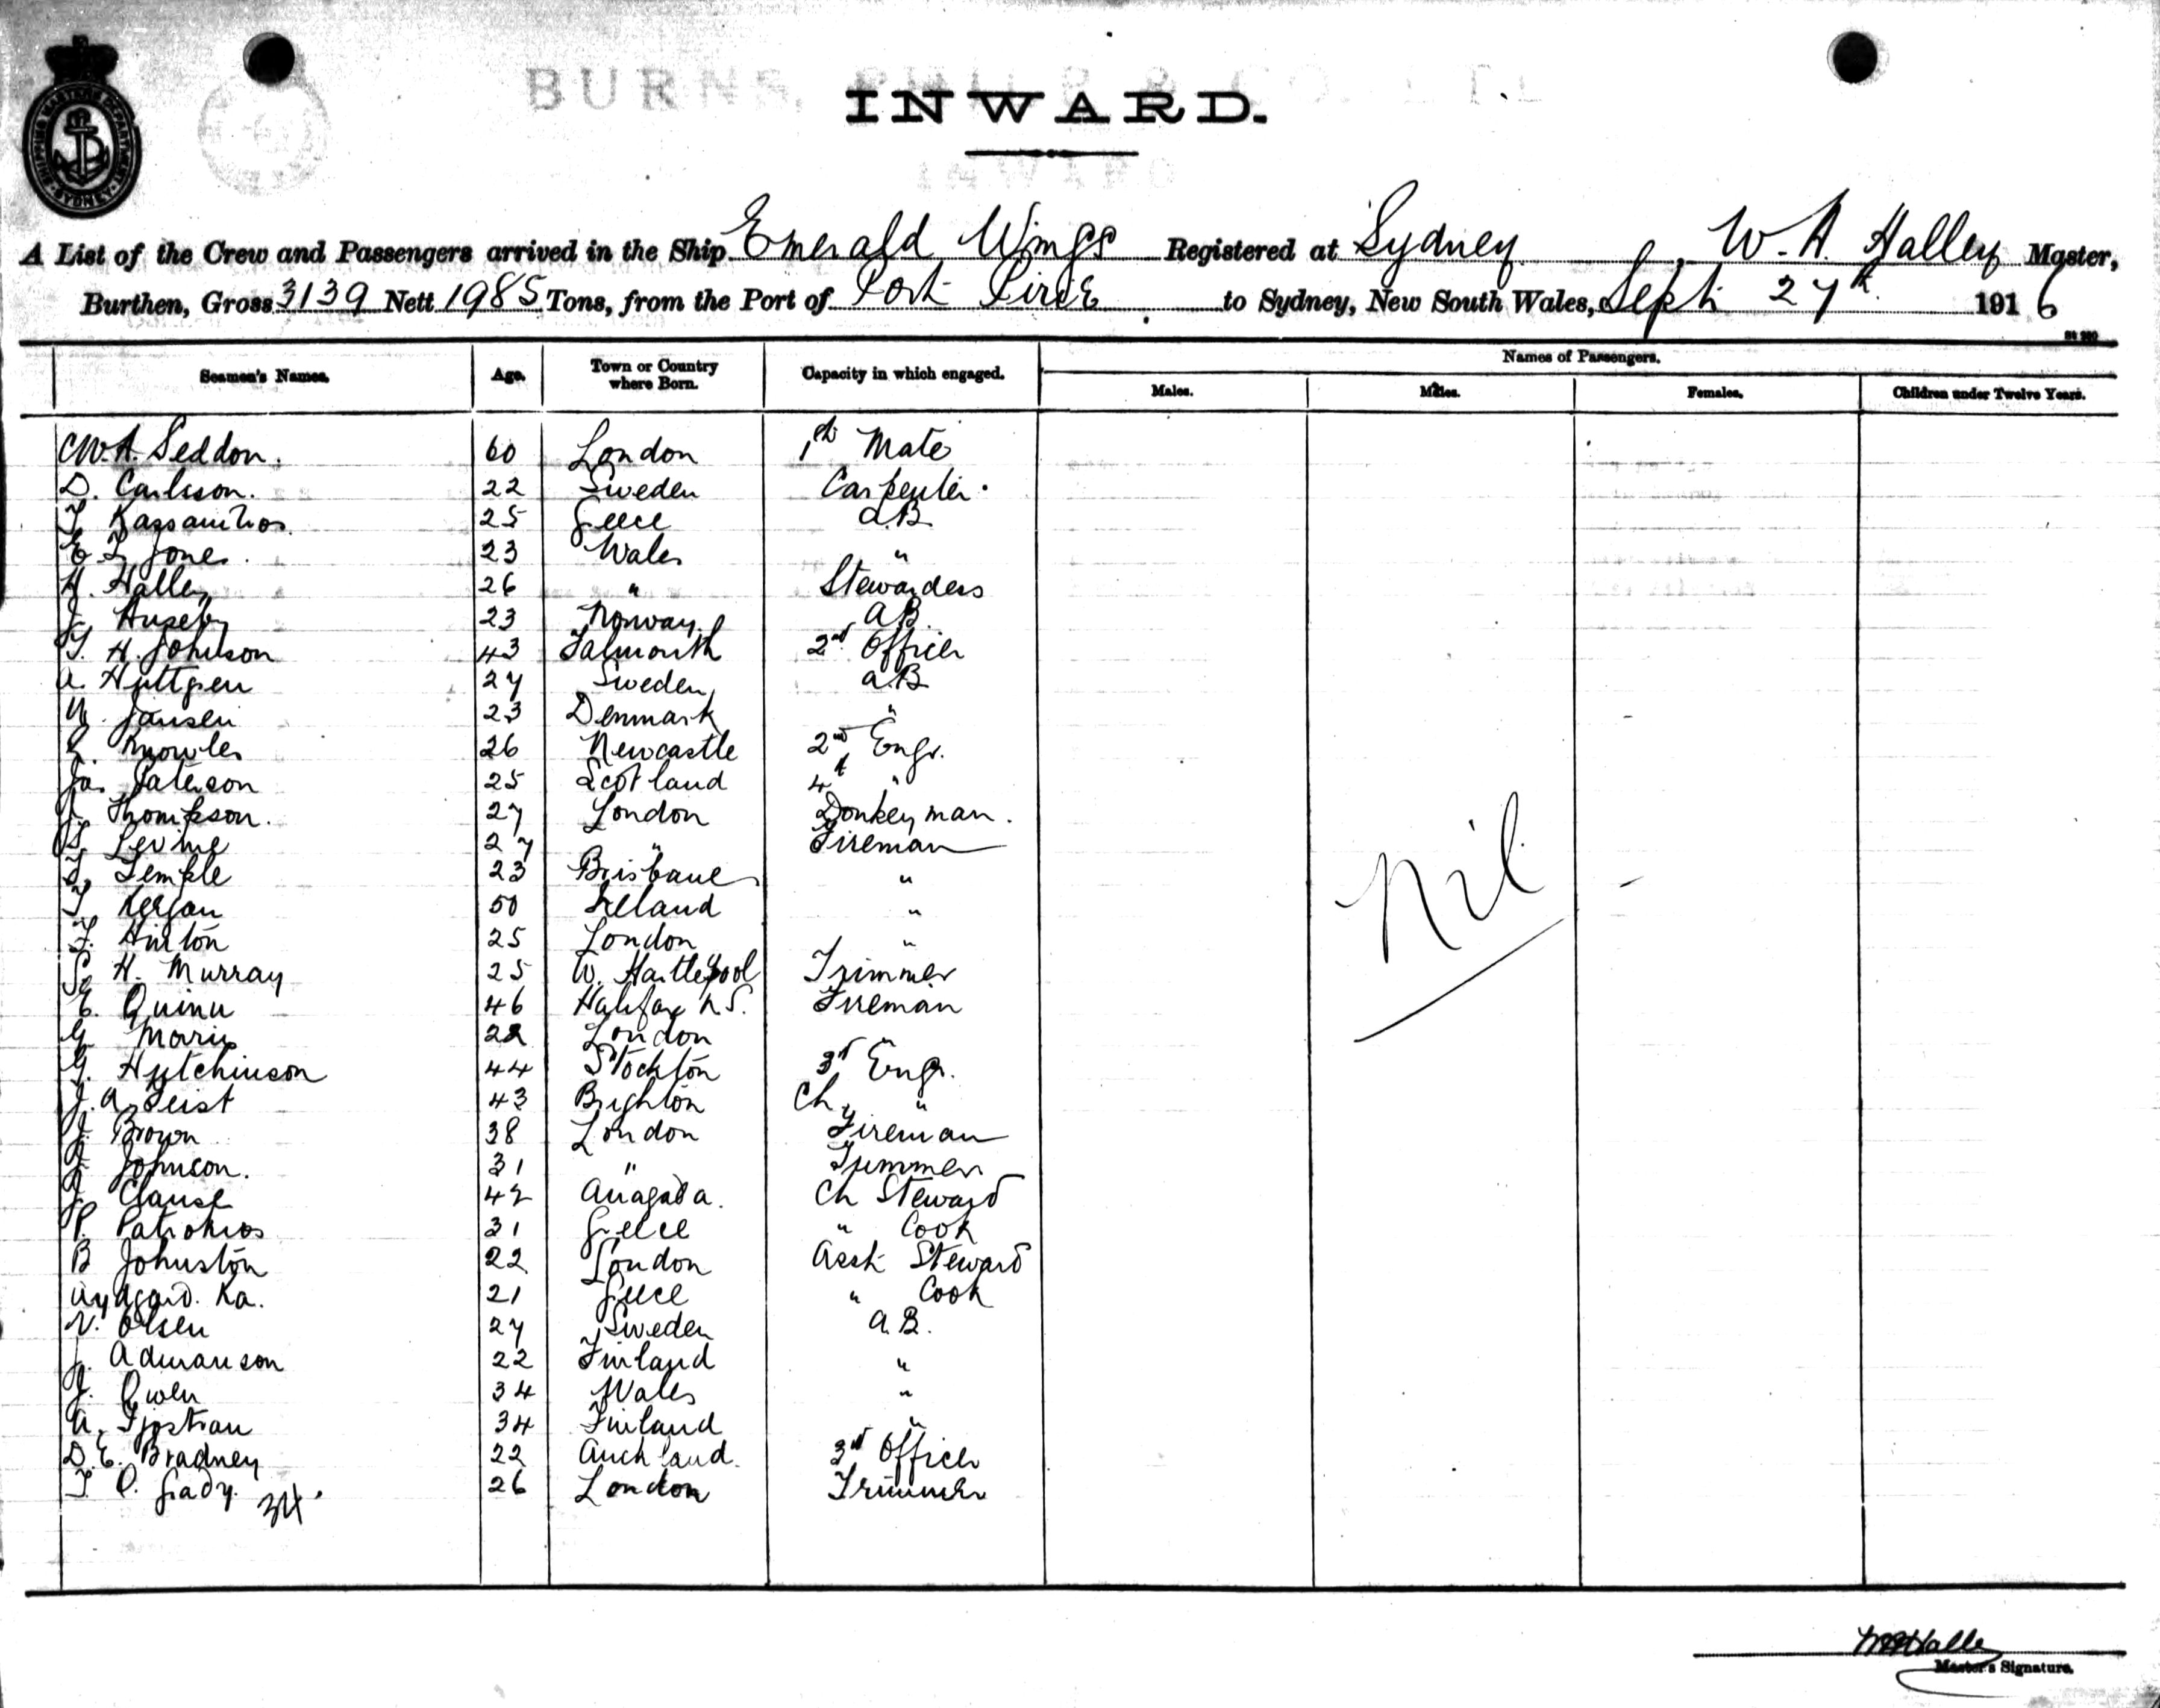 BURNS, PHILP & CO. LTD
INWARD.
INWARD
SHIPPING MASTERS DEPARTMENT SYDNEY
A List of the Crew and Passengers arrived in the Ship Emerald Wings Registered at Sydney, W. H. Halley Master,
Burthen, Gross 3139 Nett 1985 Tons, from the Port of Port Pirie to Sydney, New South Wales, Sept 27th 1916
Seamen's Names. Age. Town or Country where Born. Capacity in which engaged. Names of Passengers.
Males. Males. Females. Children under Twelve Years.
W. A. Seddon. 60 London 1st Mate
D. Carlsson. 22 Sweden Carpenter.
25 Greece A.B.
E. Jones. 23 Wales "
H. Halley 26 " Stewardess
J. Huseby 23 Norway. A.B.
T. H. Johnson 43 Falmouth 2nd Officer
A. Hultgren 27 Sweden A.B.
Jansen 23 Denmark "
Knowles 26 Newcastle 2nd Engr.
Jas. Paterson 25 Scotland 4th "
J. Thompson. 27 London Donkeyman.
Levine 27 " Fireman
Temple 23 Brisbane "
T. Keegan 50 Ireland "
F. Hinton 25 London "
H. Murray 25 W. Hartlepool Trimmer
E. Quinn 46 Halifax N.S. Fireman
G. 22 London "
G. Hutchinson 44 Stockton 3rd Engr.
J. A. Geist 43 Brighton Ch. "
J. Brown 38 London Fireman
J. Johnson. 31 " Trimmer
J. Clause 42 Anagada. Ch Steward
P. 31 Greece " Cook
B Johnston 22 London Asst Steward
21 Greece " Cook
V. Olsen 27 Sweden A.B.
J. Admanson 22 Finland "
J. Owen 34 Wales "
A. 34 Finland "
D. E. Bradney 22 Auckland. 3rd Officer
T. O. Grady. 26 London Trimmer
34.
Nil
W H Halley
Master's Signature.